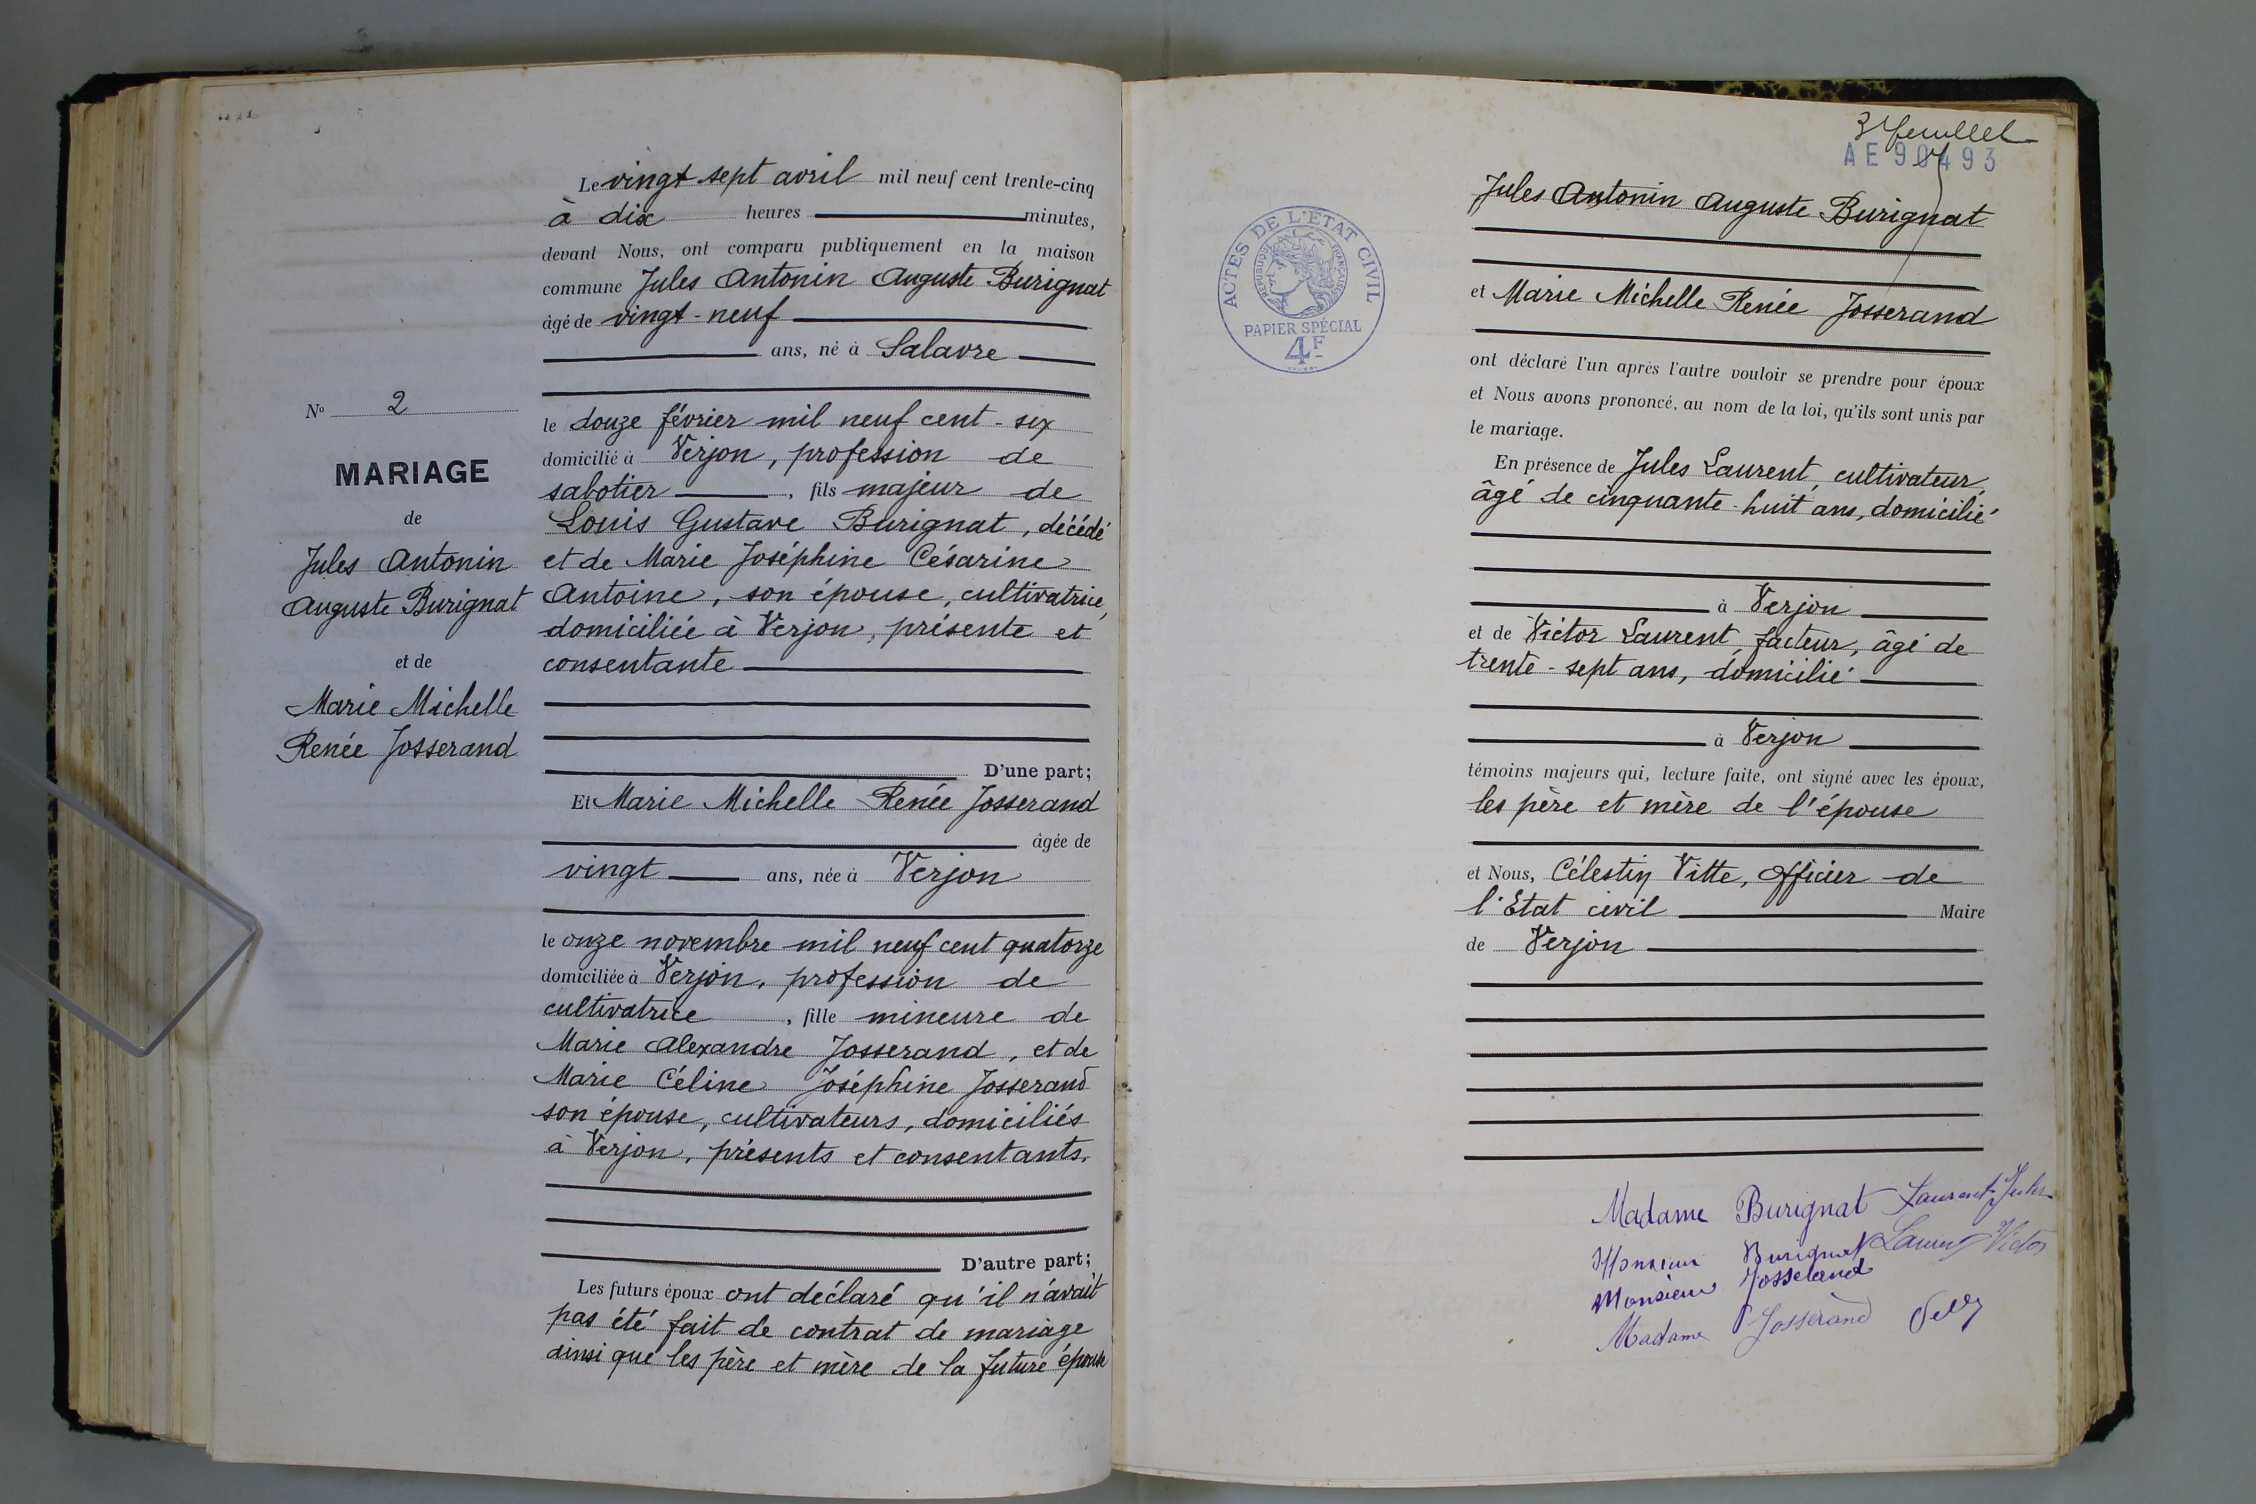 Le vingt sept avril mil neuf cent trente-cinq
à dix heures minutes,
devant Nous, ont comparu publiquement en la maison
commune Jules Antonin Auguste Burignat
âgé de vingt-neuf
ans, né à Salavre
le douze février mil neuf cent-six
domicilié à Verjon, profession de
sabotier, fils majeur de
Louis Gustave Burignat, décédé
et de Marie Joséphine Césarine
Antoine, son épouse, cultivatrice,
domiciliée à Verjon, présente et
consentante
D'une part;
Et Marie Michelle Renée Josserand
âgée de
vingt ans, née à Verjon
le onze novembre mil neuf cent quatorze
domiciliée à Verjon, profession de
cultivatrice, fille mineure de
Marie Alexandre Josserand, et de
Marie Céline Joséphine Josserand
son épouse, cultivateurs, domiciliés
à Verjon, présents et consentants.
D'autre part;
Les futurs époux ont déclaré qu'il n'avait
pas été fait de contrat de mariage
ainsi que les père et mère de la future épouse
No 2
MARIAGE
de
Jules Antonin
Auguste Burignat
et de
Marie Michelle
Renée Josserand
3e feuillet
AE 90493
ACTES DE L'ÉTAT CIVIL
RÉPUBLIQUE FRANÇAISE
PAPIER SPÉCIAL
4F
Jules Antonin Auguste Burignat
et Marie Michelle Renée Josserand
ont déclaré l'un après l'autre vouloir se prendre pour époux
et Nous avons prononcé, au nom de la loi, qu'ils sont unis par
le mariage.
En présence de Jules Laurent, cultivateur,
âgé de cinquante-huit ans, domicilié
à Verjon
et de Victor Laurent, facteur, âgé de
trente-sept ans, domicilié
à Verjon
témoins majeurs qui, lecture faite, ont signé avec les époux,
les père et mère de l'épouse
et Nous, Célestin Vitte, Officier de
l'Etat civil Maire
de Verjon
Madame Burignat Laurent Jules
Monsieur Burignat Laurent Victor
Monsieur Josserand
Madame Josserand